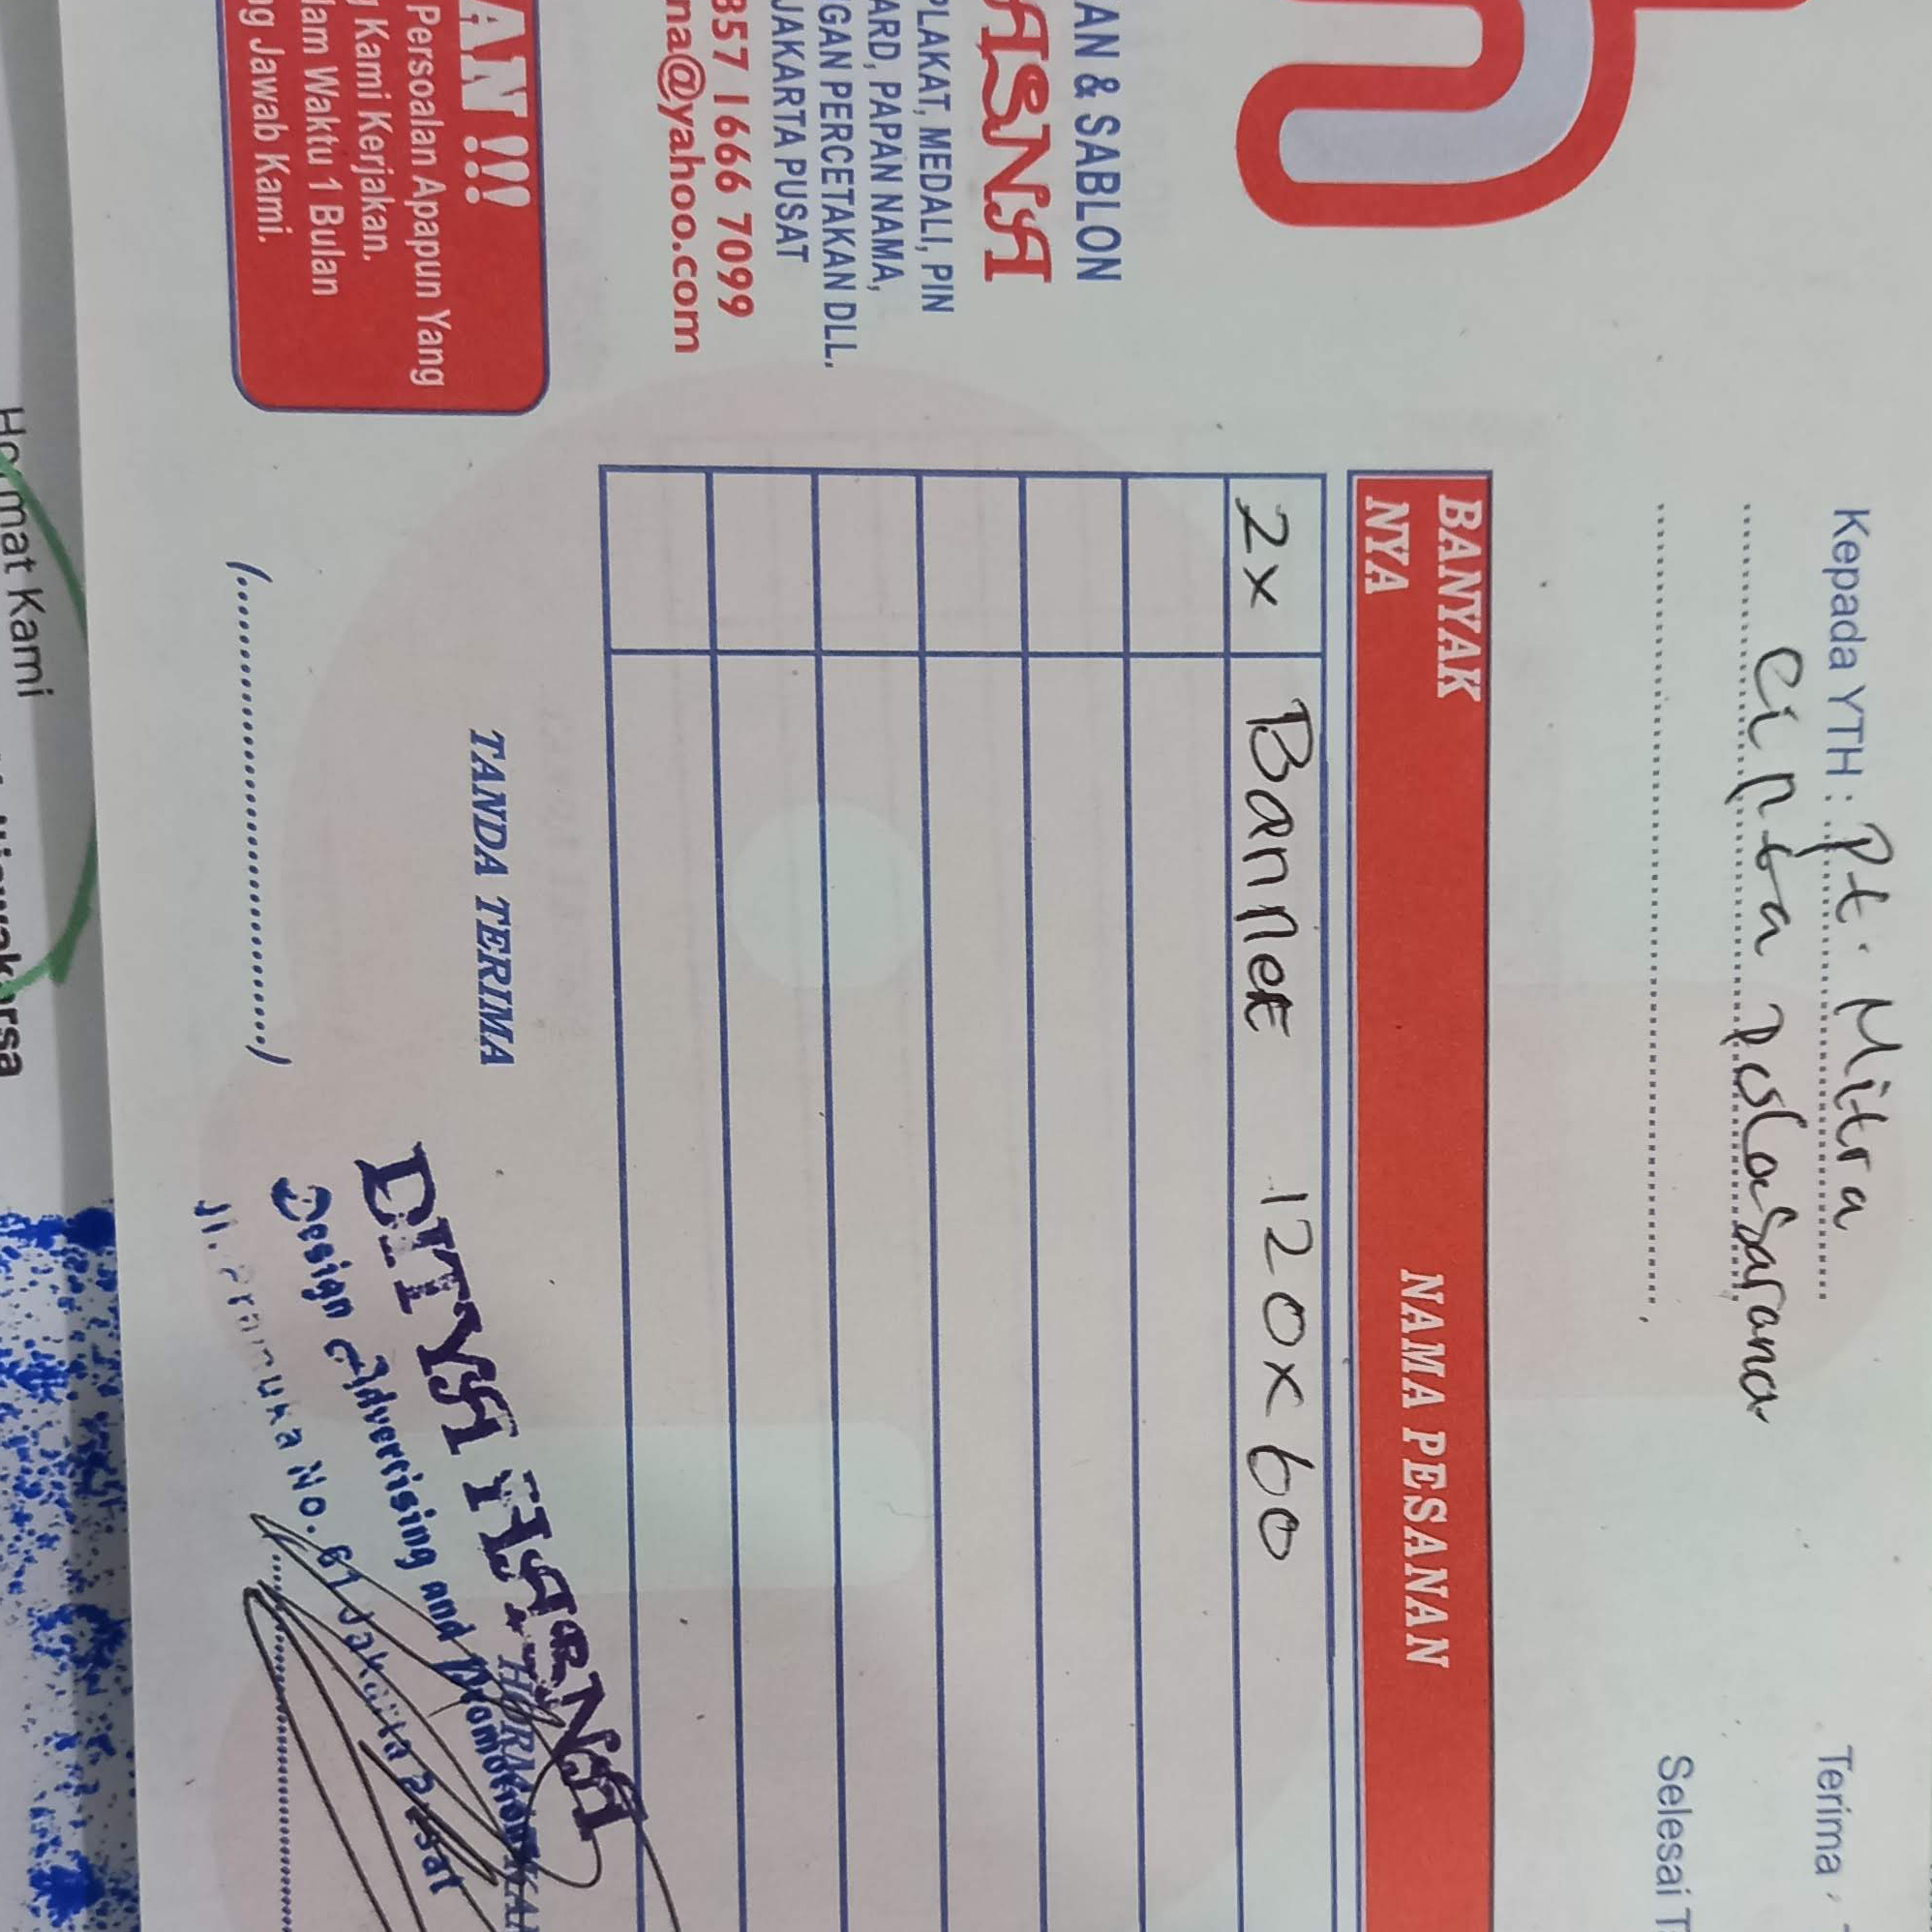 AN & SABLON
ASNA
PLAKAT, MEDALI, PIN
ARD, PAPAN NAMA,
GAN PERCETAKAN DLL.
JAKARTA PUSAT
857 1666 7099
na@yahoo.com
AN !!!
Persoalan Apapun Yang
Kami Kerjakan.
lam Waktu 1 Bulan
g Jawab Kami.
Kepada YTH : Pt. Mitra
Cipta Polasarana
Terima
Selesai T
BANYAK NYA
NAMA PESANAN
2x Banner 120x60
TANDA TERIMA
(....................)
DITYA HASNA
Design Advertising and Promotion
Jl. Pramuka No. 61 Jakarta Pusat
Hormat Kami